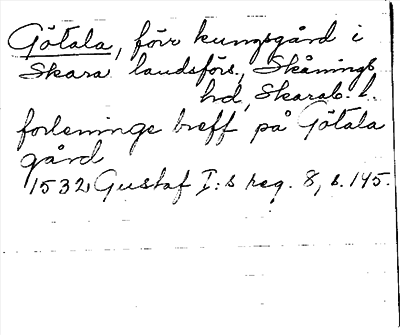 Götala, förr kungsgård i
Skara landsförs., Skånings
hd, Skarab. l.
forleninge breff på Götala
gård
1532 Gustaf I:s reg. 8, s. 145.